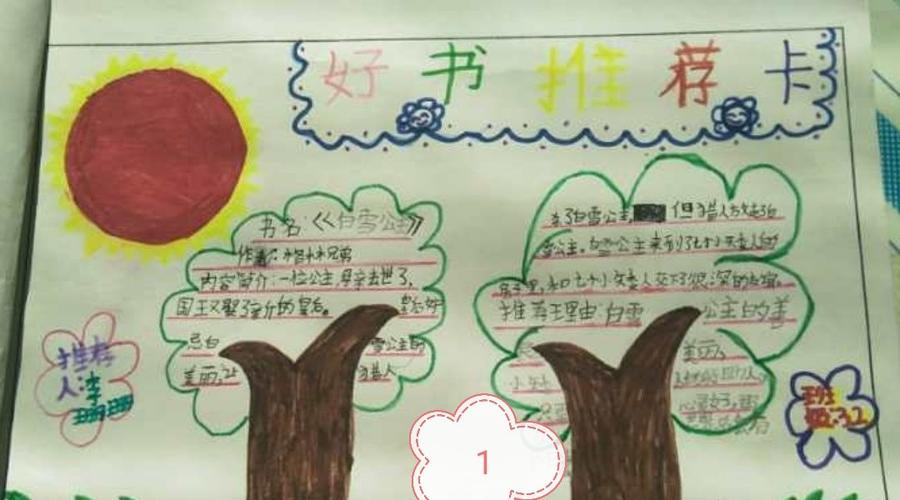 好书推荐卡
书名:《白雪公主》
作者:格林兄弟
内容简介:一位公主,母亲去世了,
国王又娶了新的皇后。 皇后好
忌白 雪公主的
美丽,让 猎人
杀了白雪公主, 但猎人放走了白
雪公主。白雪公主来到了七个小矮人的
房子里,和七个小矮人交下了很深的友谊。
推荐理由:白雪 公主的善
美丽,
小矮
推荐
人:李
珊珊
班
级:3.2
1